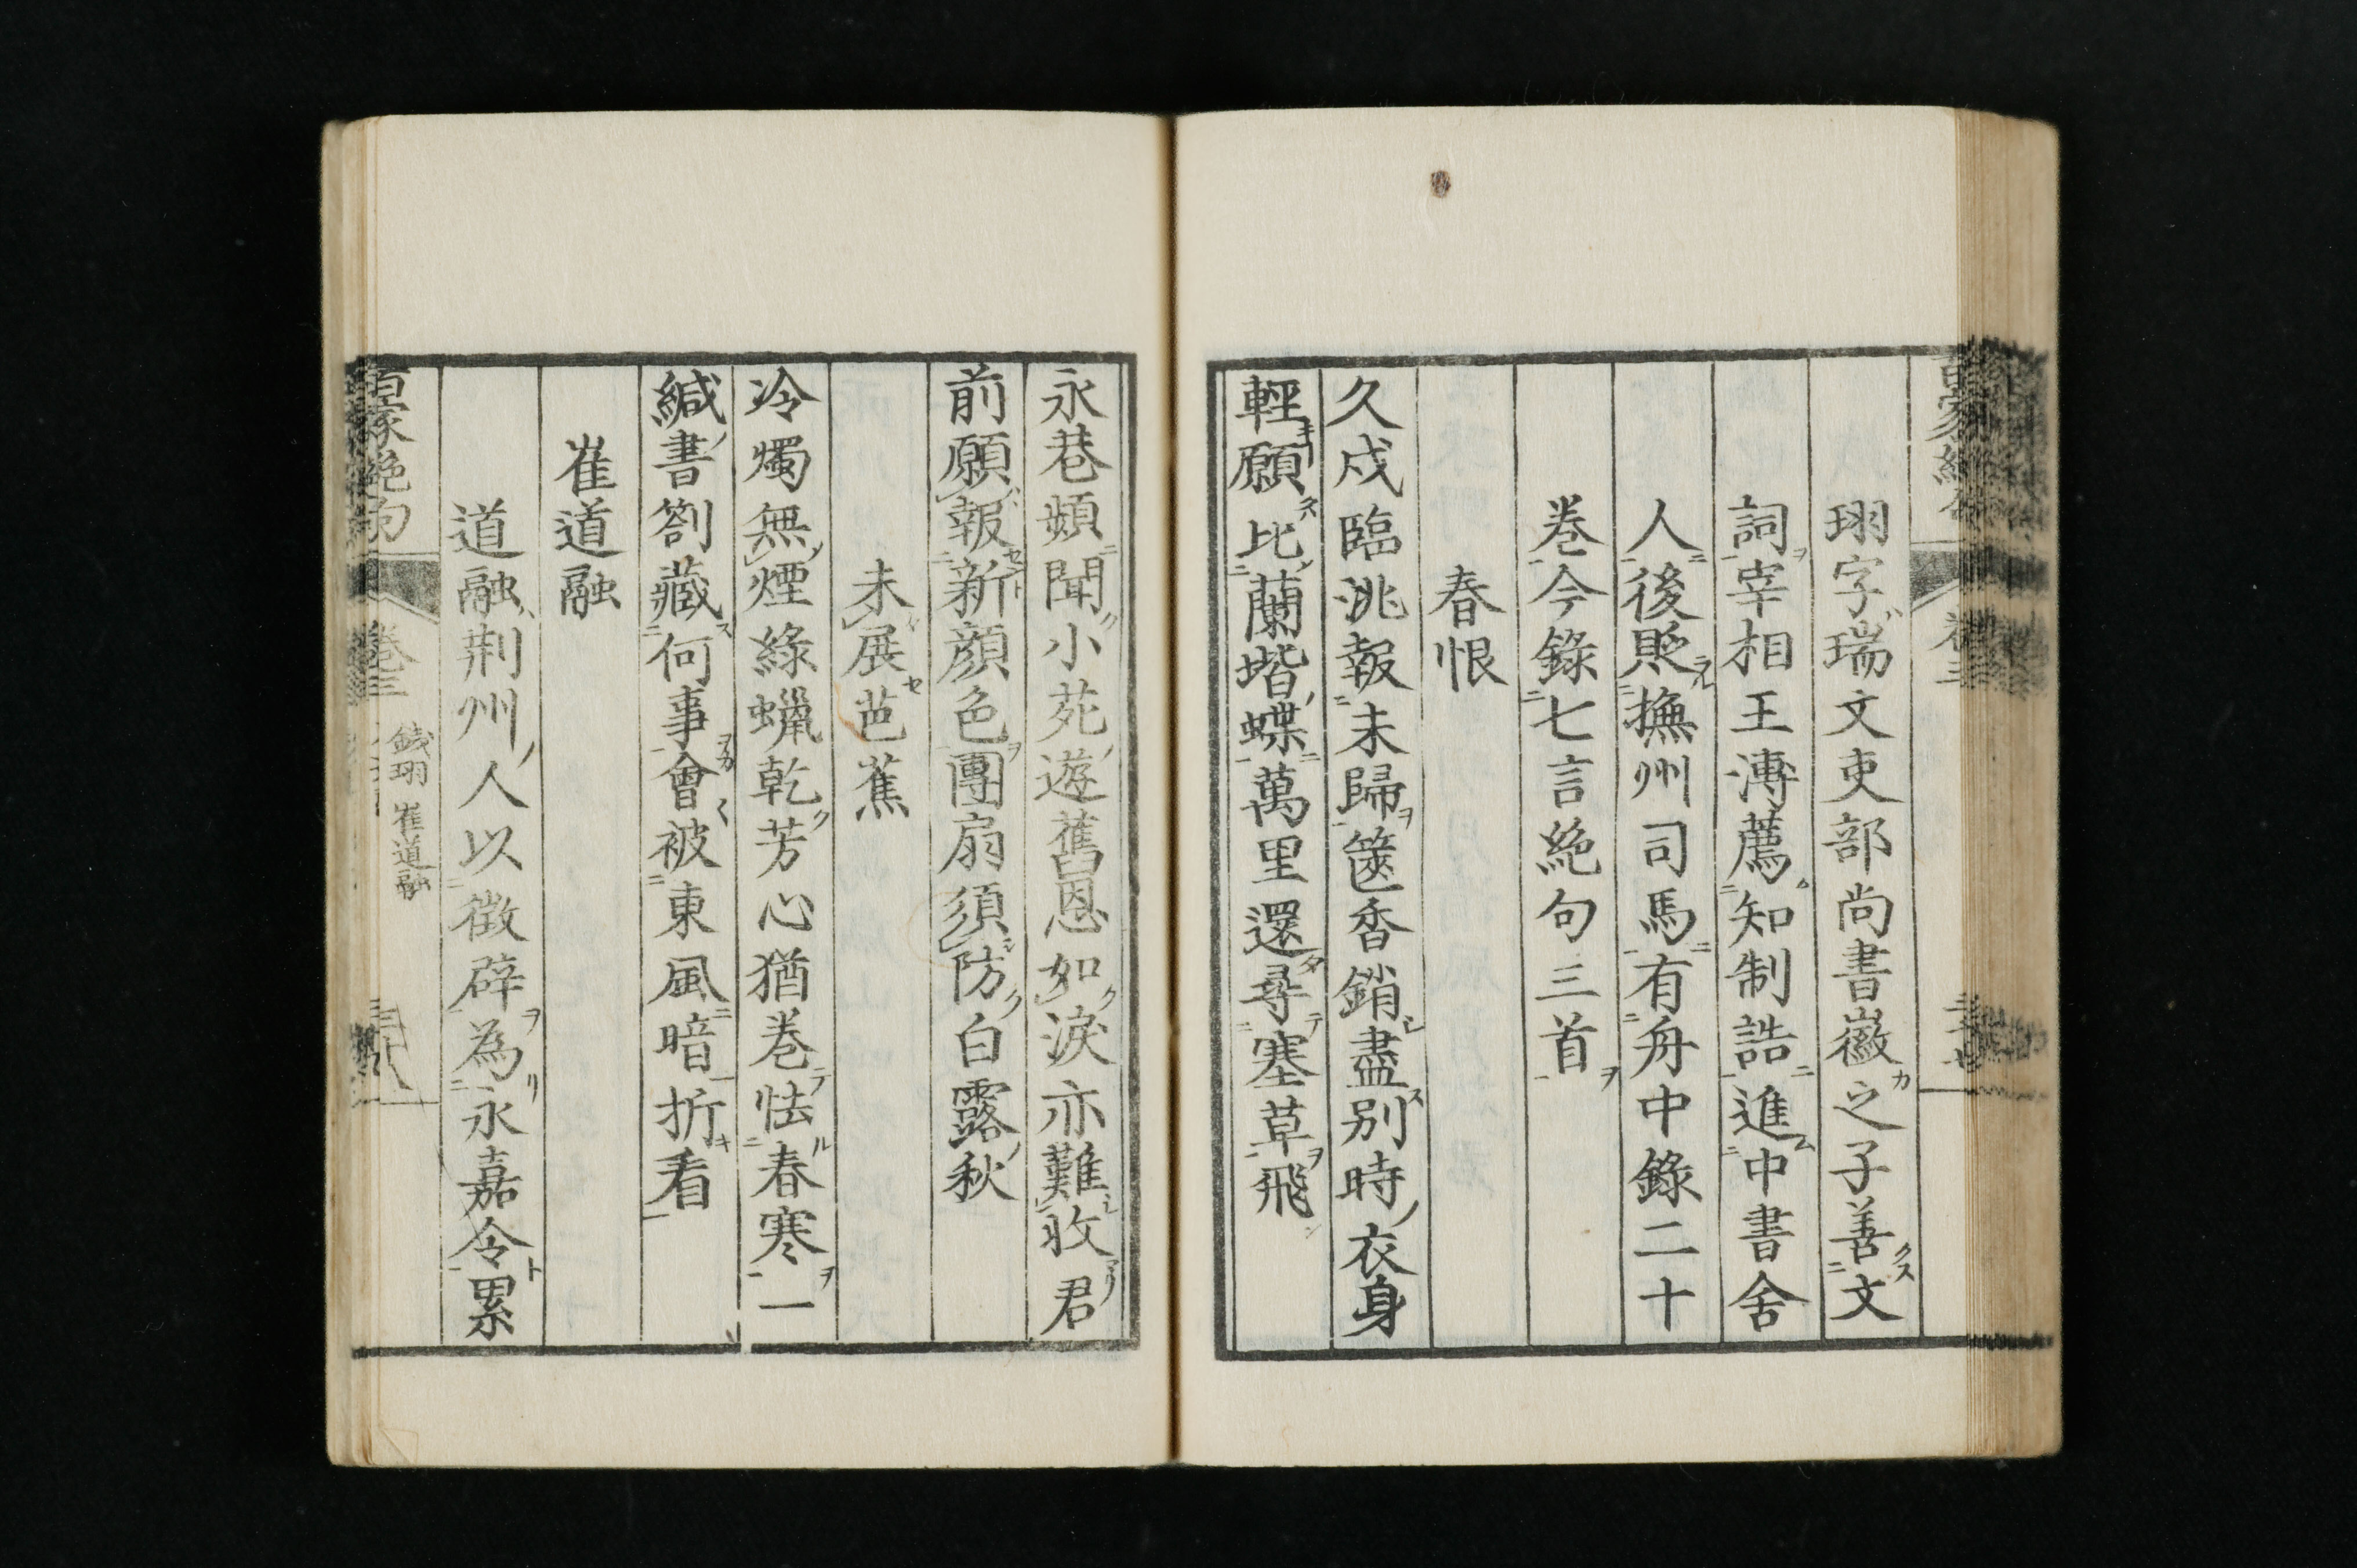 珝字瑞文吏部尚書徽之子善文
詞宰相王溥薦知制誥進中書舍
人後貶撫州司馬有舟中錄二十
巻今錄七言絶句三首
春恨
久戍臨洮報未歸篋香銷盡別時衣身
輕願比蘭堦蝶萬里還尋塞草飛
永巷頻聞小苑遊舊恩如淚亦難收君
前願報新顔色團扇須防白露秋
未展芭蕉
冷燭無煙綠蠟乾芳心猶巻怯春寒一
緘書劄藏何事會被東風暗折看
崔道融
道融荆州人以徴辟為永嘉令累
百家絶句
巻三
錢珝 崔道融